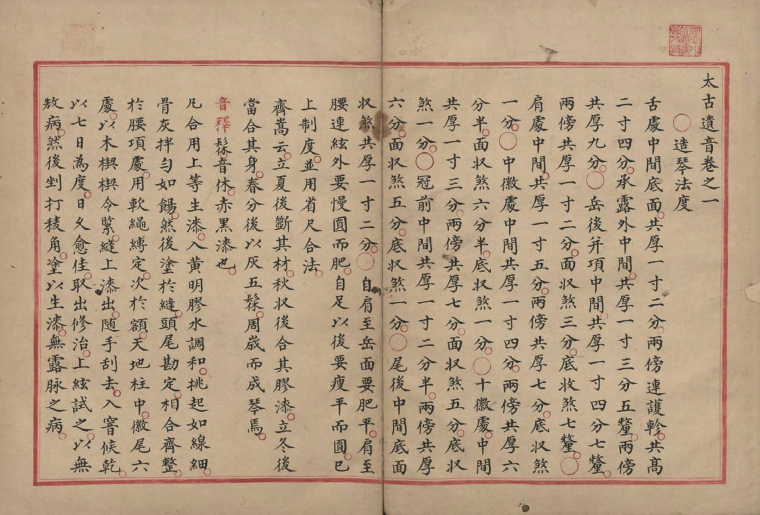 太古遺音卷之一
造琴法度
舌處中間底面共厚一寸二分兩傍連護軫共高
二寸四分承露外中間共厚一寸三分五釐兩傍
共厚九分岳後并項中間共厚一寸四分七釐
兩傍共厚一寸二分面収煞三分底収煞七釐
肩處中間共厚一寸五分兩傍共厚七分底収煞
一分中徽處中間共厚一寸四分兩傍共厚六
分半面収煞六分半底収煞一分十徽處中間
共厚一寸三分兩傍共厚七分面収煞五分底収
煞一分冠前中間共厚一寸二分半兩傍共厚
六分面収煞五分底収煞一分尾後中間底面
収煞共厚一寸二分自肩至岳面要肥平肩至
腰連絃外要慢圓而肥自足以後要瘦平而圓巳
上制度並用省尺合法
齊嵩云立夏後斵其材秋収後合其膠漆立冬後
當合其身春分後以灰五髹周歲而成琴焉
音釋髹音休赤黑漆也
凡合用上等生漆入黄明膠水調和挑起如線細
骨灰拌勻如餳然後塗於縫頭尾勘定相合齊整
於腰項處用軟繩縛定次於額天地柱中徽尾六
處以木楔楔令緊縫上漆出随手刮去入窨候乾
以七日為度日久愈佳取出修治上絃試之以無
敓病然後剉打棱角塗以生漆無露脉之病